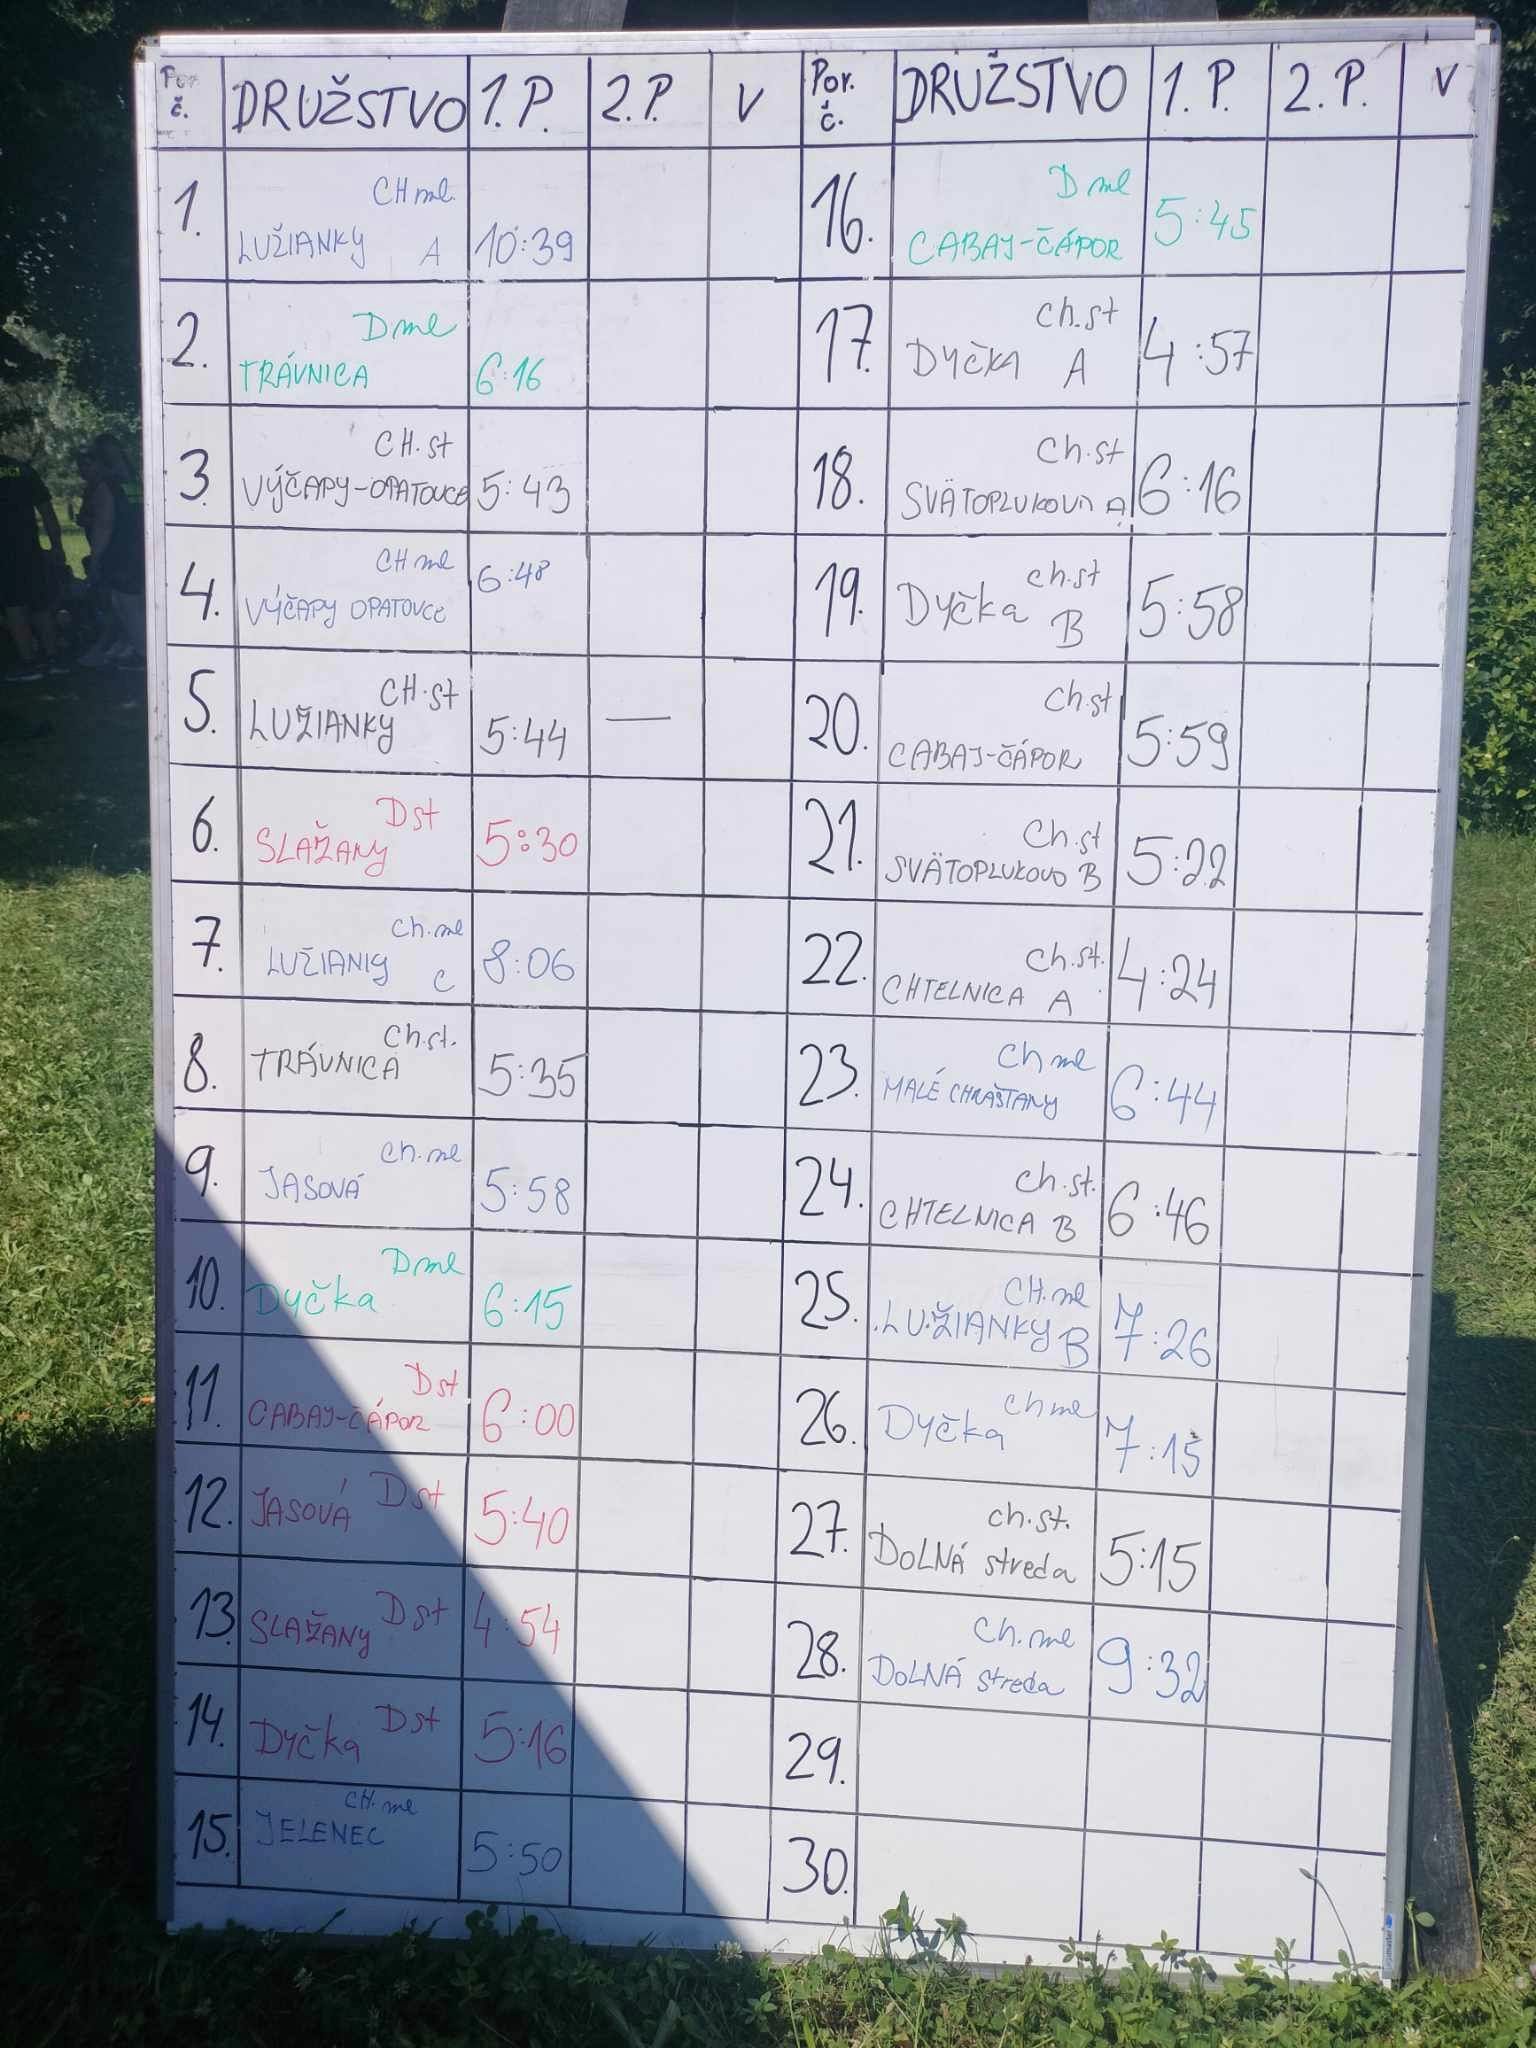 Por. č. DRUŽSTVO 1. P. 2. P. V Por. č. DRUŽSTVO 1. P. 2. P. V
1. CH ml. LUŽIANKY A 10:39
2. D ml TRÁVNICA 6:16
3. CH.st VÝČAPY-OPATOVCE 5:43
4. CH ml VÝČAPY OPATOVCE 6:48
5. CH.st LUŽIANKY 5:44 —
6. D st SLAŽANY 5:30
7. Ch.ml LUŽIANKY C 8:06
8. Ch.st. TRÁVNICA 5:35
9. Ch.ml JASOVÁ 5:58
10. D ml Dyčka 6:15
11. D st CABAJ-ČÁPOR 6:00
12. JASOVÁ D st 5:40
13. SLAŽANY D st 4:54
14. Dyčka D st 5:16
15. CH.ml JELENEC 5:50
16. D ml CABAJ-ČÁPOR 5:45
17. Ch.st DYČKA A 4:57
18. Ch.st SVÄTOPLUKOVO A 6:16
19. Ch.st Dyčka B 5:58
20. Ch.st CABAJ-ČÁPOR 5:59
21. Ch.st SVÄTOPLUKOVO B 5:22
22. Ch.st. CHTELNICA A 4:24
23. Ch ml MALÉ CHRAŠŤANY 6:44
24. Ch.st. CHTELNICA B 6:46
25. CH.ml LUŽIANKY B 7:26
26. Ch ml Dyčka 7:15
27. Ch.st. DOLNÁ streda 5:15
28. Ch.ml DOLNÁ streda 9:32
29.
30.